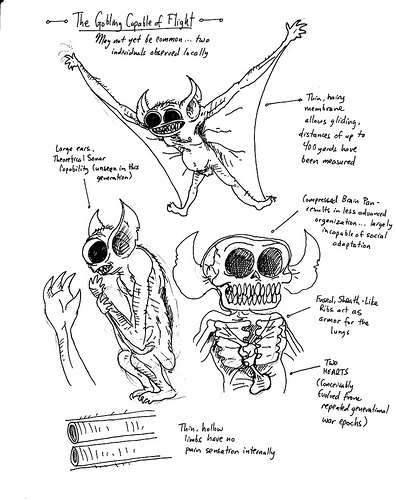 The Gobling Capable of Flight
May not yet be common... two
individuals observed locally
Thin, hairy
membrane
allows gliding,
distances of up to
400 yards have
been measured
Large ears,
Theoretical Sonar
Capability (unseen in this
generation)
Compressed Brain Pan -
results in less advanced
organization... largely
incapable of social
adaptation
Fused, Sheath-Like
Ribs act as
armor for the
lungs
Two
HEARTS
(Conceivably
Evolved from
repeated generational
war epochs)
Thin, hollow
limbs have no
pain sensation internally